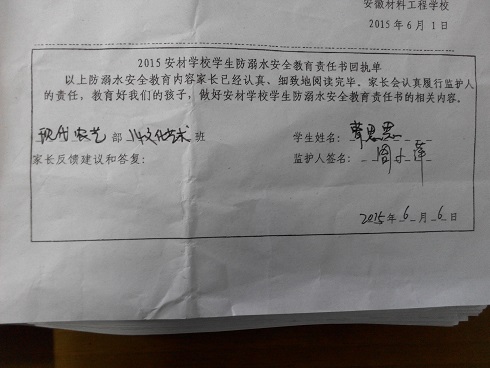 安徽材料工程学校
2015年6月1日
2015安材学校学生防溺水安全教育责任书回执单
以上防溺水安全教育内容家长已经认真、细致地阅读完毕。家长会认真履行监护人
的责任，教育好我们的孩子，做好安材学校学生防溺水安全教育责任书的相关内容。
现代农艺部 文化艺术班 学生姓名：曹思思
家长反馈建议和答复： 监护人签名：周小萍
2015年6月6日